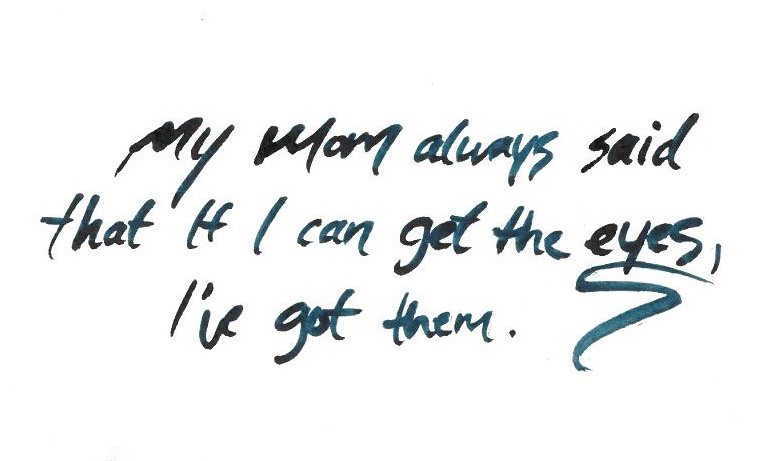 My Mom always said
that If I can get the eyes,
I've got them.